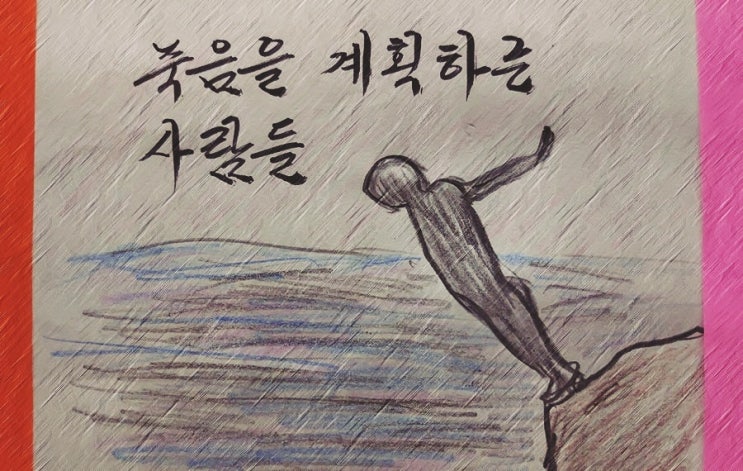 죽음을 계획하는
사람들